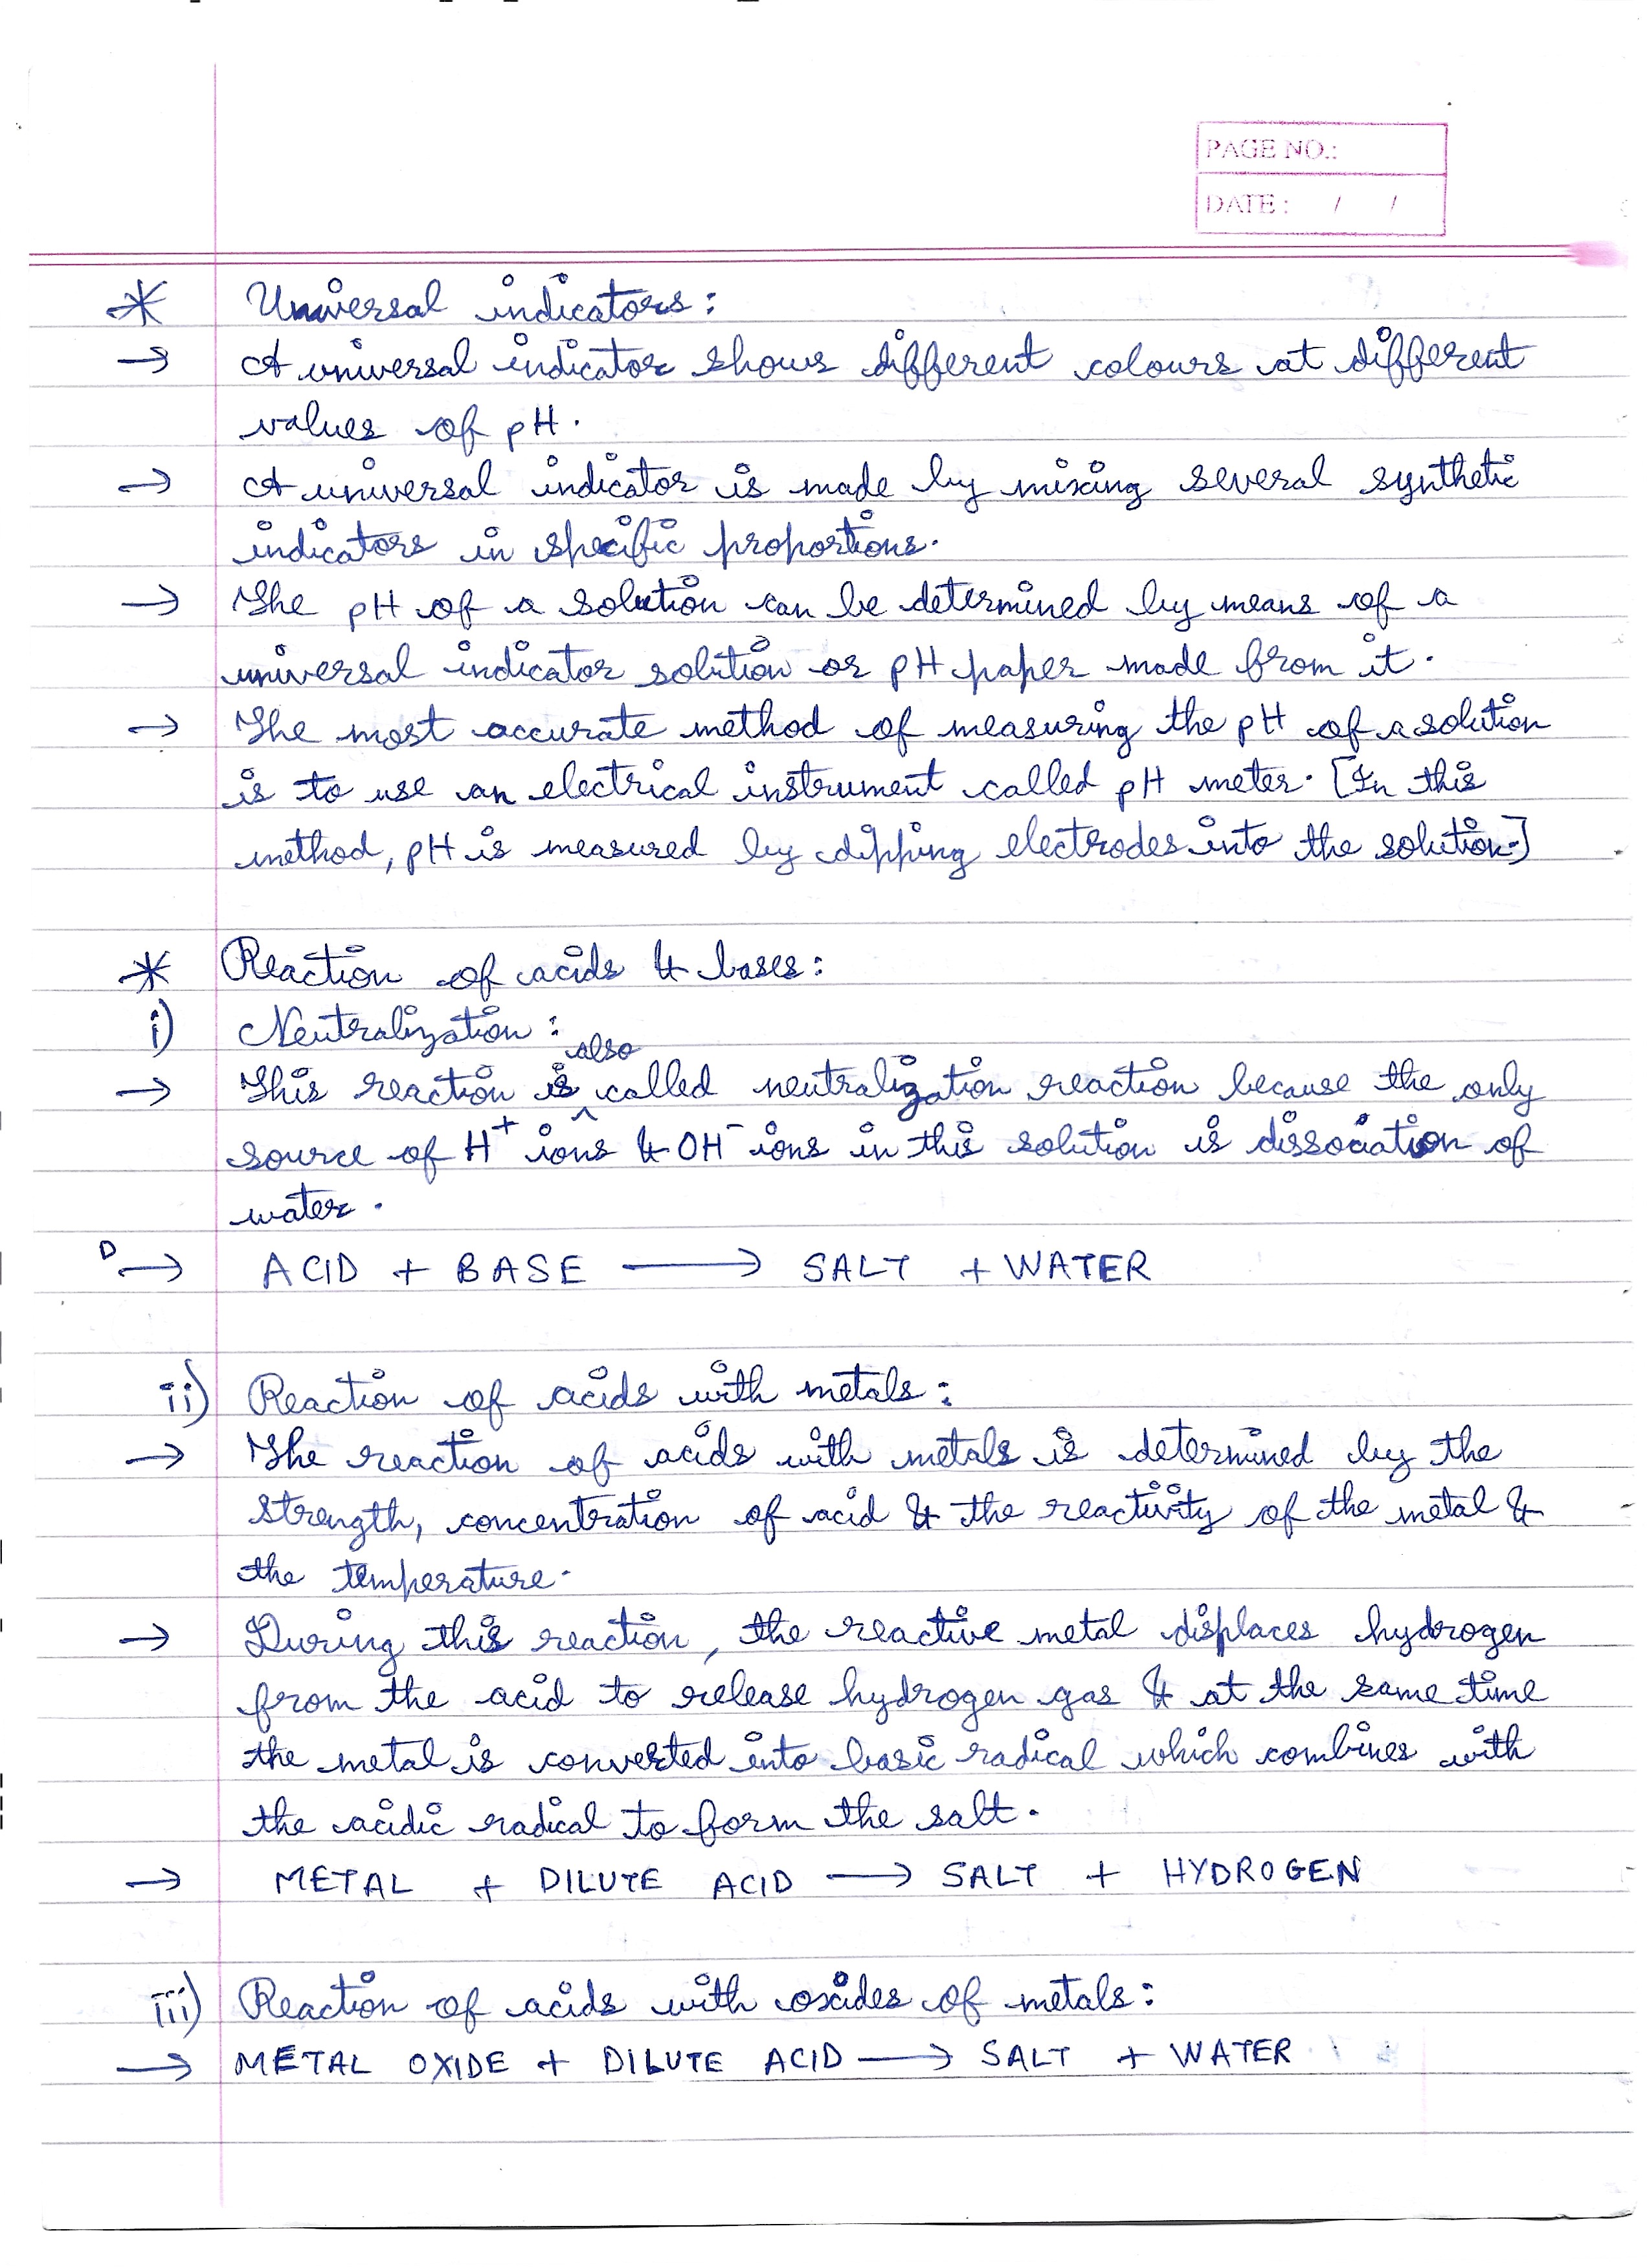 PAGE NO.:
DATE : / /
* Universal indicators:
→ A universal indicator shows different colours at different
values of pH.
→ A universal indicator is made by mixing several synthetic
indicators in specific proportions.
→ The pH of a solution can be determined by means of a
universal indicator solution or pH paper made from it.
→ The most accurate method of measuring the pH of a solution
is to use an electrical instrument called pH meter. [In this
method, pH is measured by dipping electrodes into the solution.]
* Reaction of acids & bases:
i) Neutralization:
→ This reaction is also called neutralization reaction because the only
source of H⁺ ions & OH⁻ ions in this solution is dissociation of
water.
D→ ACID + BASE ⟶ SALT + WATER
ii) Reaction of acids with metals:
→ The reaction of acids with metals is determined by the
strength, concentration of acid & the reactivity of the metal &
the temperature.
→ During this reaction, the reactive metal displaces hydrogen
from the acid to release hydrogen gas & at the same time
the metal is converted into basic radical which combines with
the acidic radical to form the salt.
→ METAL + DILUTE ACID ⟶ SALT + HYDROGEN
iii) Reaction of acids with oxides of metals:
→ METAL OXIDE + DILUTE ACID ⟶ SALT + WATER